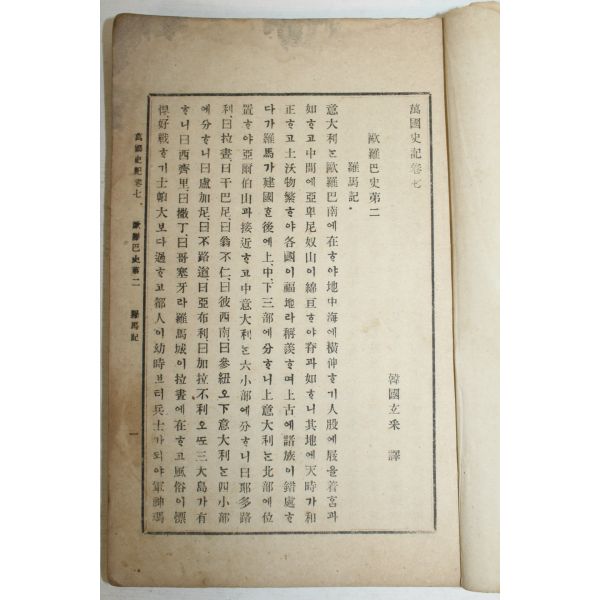 萬國史記卷七
韓國玄采 譯
歐羅巴史第二
羅馬記
意大利ᄂᆞᆫ歐羅巴南에在ᄒᆞ야地中海에橫伸ᄒᆞ기人股에屐을着홈과
如ᄒᆞ고中間에亞卑尼奴山이綿亘ᄒᆞ야脊과如ᄒᆞ니其地에天時가和
正ᄒᆞ고土沃物繁ᄒᆞ야各國이福地라稱羨ᄒᆞ며上古에諸族이錯處ᄒᆞ
다가羅馬가建國ᄒᆞᆫ後에上、中、下三部에分ᄒᆞ니上意大利ᄂᆞᆫ北部에位
置ᄒᆞ야亞爾伯山과接近ᄒᆞ고中意大利ᄂᆞᆫ六小部에分ᄒᆞ니曰耶多路
利、曰拉晝、曰干巴足、曰翁不仁、曰彼西南曰參紐오下意大利ᄂᆞᆫ四小部
에分ᄒᆞ니曰盧加足、曰不路道、曰亞布利、曰加拉不利오ᄯᅩ三大島가有
ᄒᆞ니曰西齊里、曰撒丁、曰哥塞牙라羅馬城이拉晝에在ᄒᆞ고風俗이慓
悍、好戰ᄒᆞ기士帕大보다過ᄒᆞ고都人이幼時브터兵士가되야軍神瑪
萬國史記卷七、 歐羅巴史第二 羅馬記 一